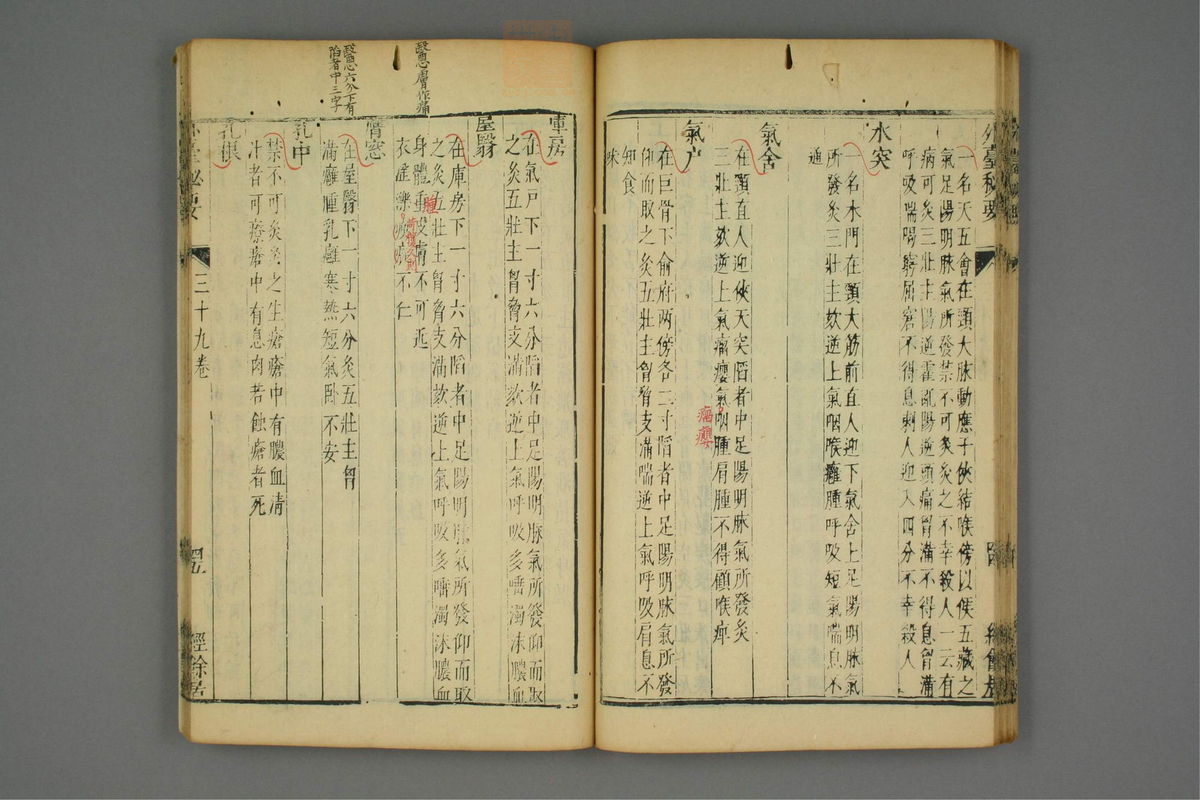 一名天五會在頸大脉動應手俠結喉傍以候五藏之
氣足陽明脉氣所發禁不可灸灸之不幸殺人一云有
病可灸三壯主陽逆霍亂陽逆頭痛胷滿不得息胷滿
呼吸喘喝窮屈窘不得息刺人迎入四分不幸殺人
水突
一名水門在頸大筋前直人迎下氣舍上足陽明脉氣
所發灸三壯主欬逆上氣咽喉癰腫呼吸短氣喘息不
通
氣舍
在頸直人迎俠天突陷者中足陽明脉氣所發灸
三壯主欬逆上氣瘤癭氣咽腫肩腫不得顧喉痹
瘤癭
氣户
在巨骨下俞府兩傍各二寸陷者中足陽明脉氣所發
仰而取之灸五壯主胷脅支滿喘逆上氣呼吸肩息不
知食
味
庫房
在氣戶下一寸六分陷者中足陽明脉氣所發仰而取
之灸五壯主胷脅支滿欬逆上氣呼吸多唾濁沫膿血
屋翳
在庫房下一寸六分陷者中足陽明脉氣所發仰而取
之灸五壯主胷脅支滿欬逆上氣呼吸多唾濁沫膿血
身體重皮膚不可近
腫
衣淫濼不仁
膺窓
在屋翳下一寸六分灸五壯主胷
滿癰腫乳癰寒熱短氣卧不安
乳中
禁不可灸灸之生瘡瘡中有膿血清
汁者可療瘡中有息肉若蝕瘡者死
乳根
外臺秘要
三十九卷
四五
經餘居
醫惠膚作痛
醫惠六分下有
陷者中三字